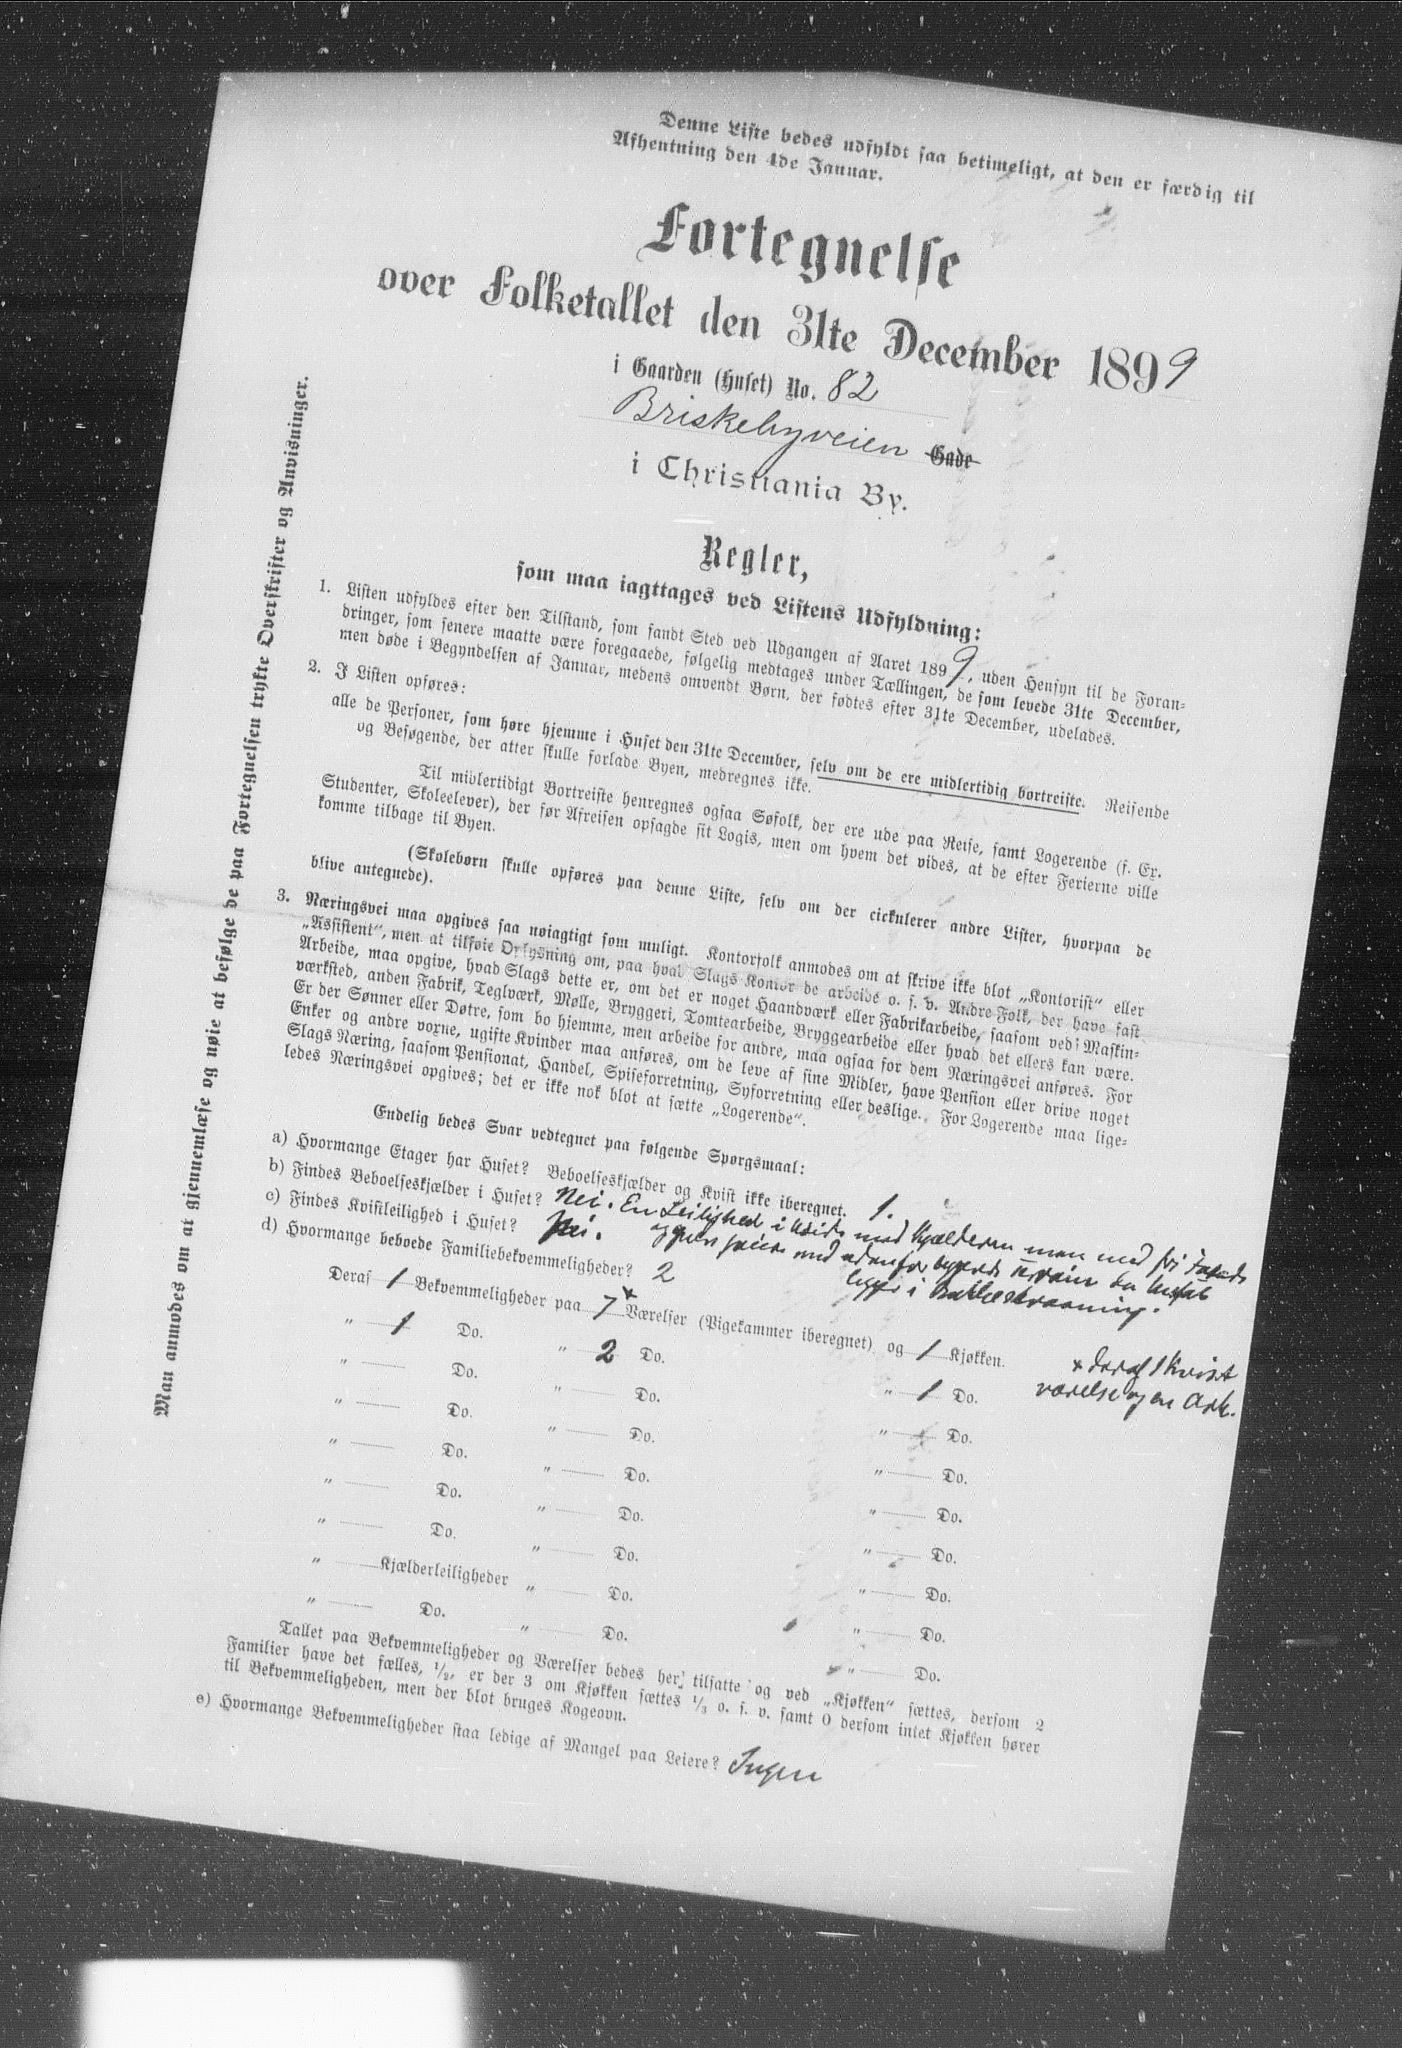 Denne Liste bedes udfyldt saa betimeligt, at den er færdig til
Afhentning den 4de Januar.
Fortegnelse
over Folketallet den 31te December 1899
i Gaarden (Huset) No. 82
Briskebyveien Gade
i Christiania By.
Regler,
som maa iagttages ved Listens Udfyldning:
1. Listen udfyldes efter den Tilstand, som fandt Sted ved Udgangen af Aaret 1899, uden Hensyn til de Foran-
dringer, som senere maatte være foregaaede, følgelig medtages under Tællingen, de som levede 31te December,
men døde i Begyndelsen af Januar, medens omvendt Børn, der fødtes efter 31te December, udelades.
2. I Listen opføres:
alle de Personer, som høre hjemme i Huset den 31te December, selv om de ere midlertidig bortreiste. Reisende
og Besøgende, der atter skulle forlade Byen, medregnes ikke.
Til midlertidigt Bortreiste henregnes ogsaa Søfolk, der ere ude paa Reise, samt Logerende (f. Ex.
Studenter, Skoleelever), der før Afreisen opsagde sit Logis, men om hvem det vides, at de efter Ferierne ville
komme tilbage til Byen.
(Skolebørn skulle opføres paa denne Liste, selv om der cirkulerer andre Lister, hvorpaa de
blive antegnede).
3. Næringsvei maa opgives saa nøiagtigt som muligt. Kontorfolk anmodes om at skrive ikke blot „Kontorist“ eller
„Assistent“, men at tilføie Oplysning om, paa hvad Slags Kontor de arbeide o. s. v. Andre Folk, der have fast
Arbeide, maa opgive, hvad Slags dette er, om det er noget Haandværk eller Fabrikarbeide, saasom ved Maskin-
værksted, anden Fabrik, Teglværk, Mølle, Bryggeri, Tomtearbeide, Bryggearbeide eller hvad det ellers kan være.
Er der Sønner eller Døtre, som bo hjemme, men arbeide for andre, maa ogsaa for dem Næringsvei anføres. For
Enker og andre vorne, ugifte Kvinder maa anføres, om de leve af sine Midler, have Pension eller drive noget
Slags Næring, saasom Pensionat, Handel, Spiseforretning, Syforretning eller deslige. For Logerende maa lige-
ledes Næringsvei opgives; det er ikke nok blot at sætte „Logerende“.
Endelig bedes Svar vedtegnet paa følgende Spørgsmaal:
a) Hvormange Etager har Huset? Beboelseskjælder og Kvist ikke iberegnet. 1.
b) Findes Beboelseskjælder i Huset? Nei. En Leilighed i med Kjælderen men med fri
c) Findes Kvistleilighed i Huset? Nei.
ligger i
d) Hvormange beboede Familiebekvemmeligheder? 2
Deraf 1 Bekvemmeligheder paa 7 × Værelser (Pigekammer iberegnet) og 1 Kjøkken.
× deraf 1 Kvist
værelse og en Ark.
„ 1 Do. „ 2 Do. „ 1 Do.
„ Do. „ Do. „ Do.
„ Do. „ Do. „ Do.
„ Do. „ Do. „ Do.
„ Do. „ Do. „ Do.
„ Do. „ Do. „ Do.
„ Kjælderleiligheder „ Do. „ Do.
„ Do. „ Do. „ Do.
Tallet paa Bekvemmeligheder og Værelser bedes her tilsatte og ved „Kjøkken“ sættes, dersom 2
Familier have det fælles, 1/2, er der 3 om Kjøkken sættes 1/3 o. s. v. samt 0 dersom intet Kjøkken hører
til Bekvemmeligheden, men der blot bruges Kogeovn.
e) Hvormange Bekvemmeligheder staa ledige af Mangel paa Leiere? Ingen
Man anmodes om at gjennemlæse og nøie at befølge de paa Fortegnelsen trykte Overskrifter og Anvisninger.